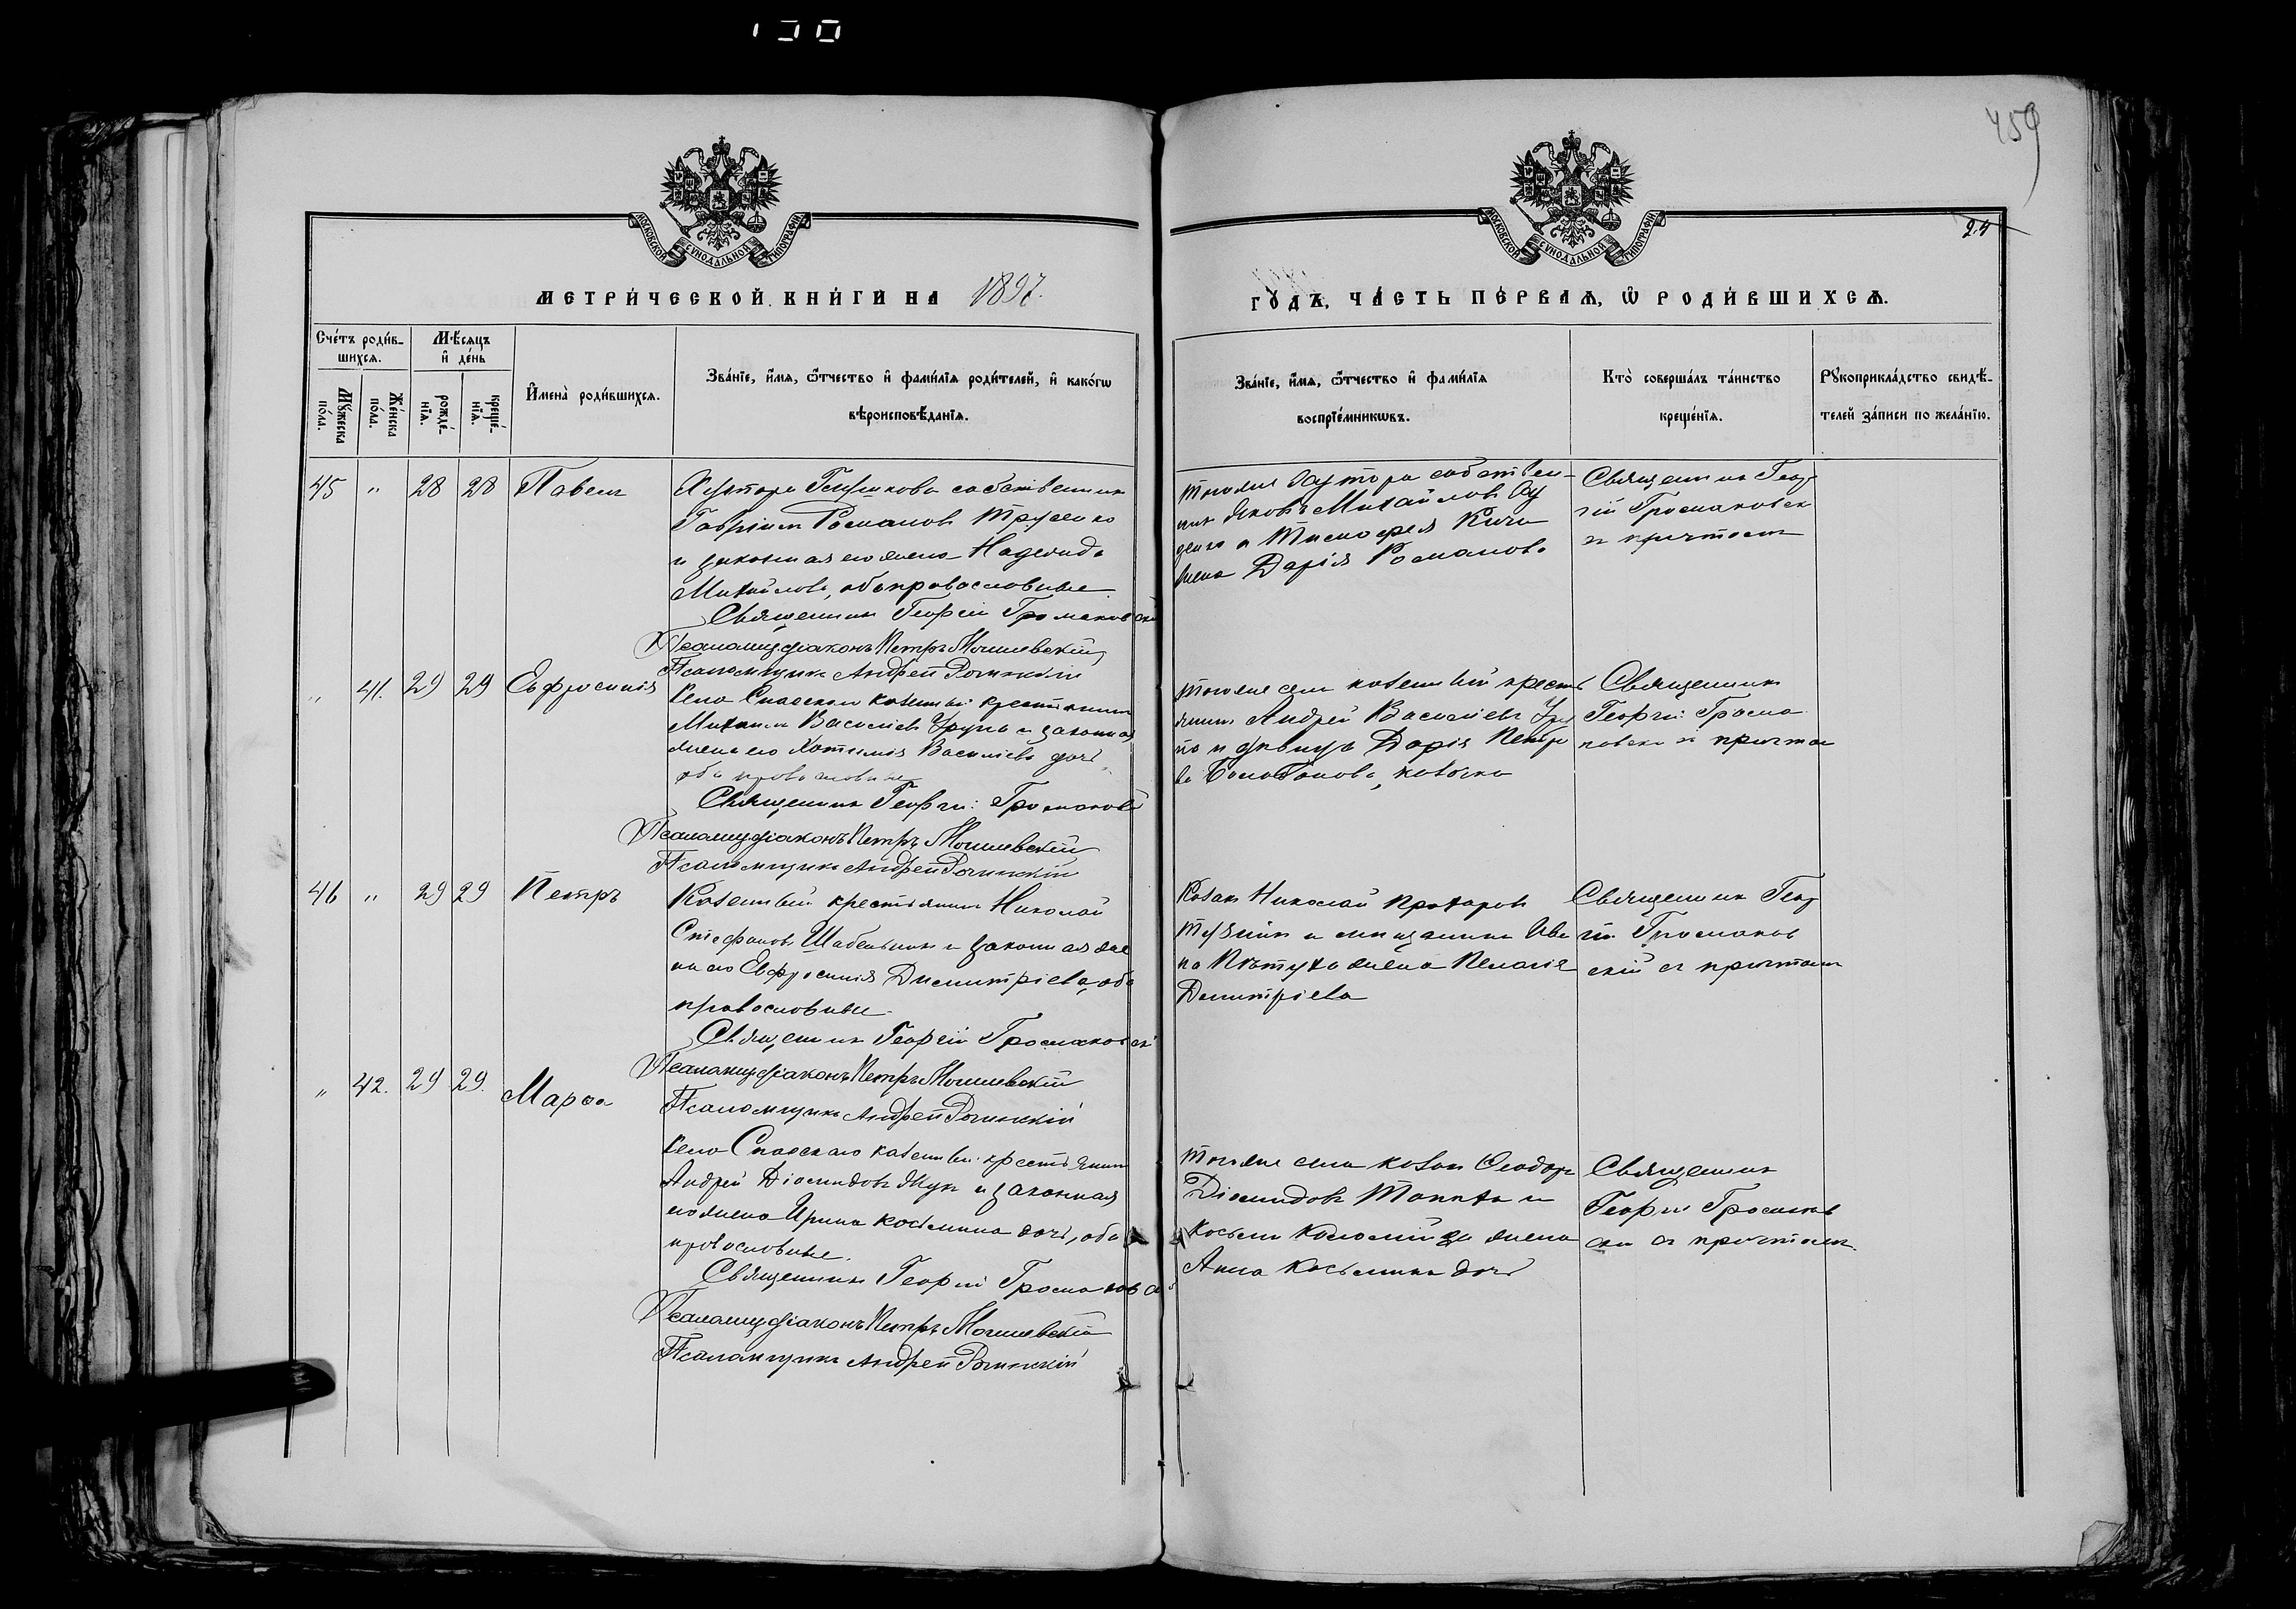 459
24
МОСКОВСКОЙ СѴНОДАЛЬНОЙ ТИПОГРАФІИ
МОСКОВСКОЙ СѴНОДАЛЬНОЙ ТИПОГРАФІИ
МЕТРИ́ЧЕСКОЙ КНИ́ГИ НА 1897.
ГО́ДЪ, ЧА́СТЬ ПЕ́РВАѦ, Ѡ҆ РОДИ́ВШИХСѦ.
Сче́тъ роди́в-
шихсѧ.
Мꙋ́жеска
по́ла.
Же́нска
по́ла.
Мѣ́сѧцъ
и҆ де́нь
рожде́-
нїѧ.
креще́-
нїѧ.
И҆мена̀ роди́вшихсѧ.
Зва́нїе, и҆́мѧ, ѻ҆́тчество и҆ фами́лїѧ роди́телей, и҆ како́гѡ
вѣроисповѣ́данїѧ.
Зва́нїе, и҆́мѧ, ѻ҆́тчество и҆ фами́лїѧ
воспрїе́мникѡвъ.
Кто̀ соверша́лъ та́инство
креще́нїѧ.
Рꙋкоприкла́дство свидѣ́-
телей за́писи по жела́нїю.
45 " 28 28 Павелъ
Хутора собственникъ
Гавріилъ Романовъ Труленко
и законная его жена Надежда
Михайлова, оба православные
Священникъ Георгій Громаковскій
Псаломщ. діаконъ Петръ Могилевскій
Псаломщикъ Андрей Рогинскій
тогоже хутора собствен-
никъ Яковъ Михайловъ
и Тимофея
жена Дарія Романова
Священникъ Геор
гій Громаковск
съ причтомъ
" 41. 29 29 Евфросинія
Села Спаскаго казенный крестьянинъ
Михаилъ Васильевъ и законная
жена его Васильева дочь,
оба православные
Священникъ Георгій Громаковс
Псаломщ. діаконъ Петръ Могилевскій
Псаломщикъ Андрей Рогинскій
тогоже села казенный кресть
янинъ Андрей Васильевъ
и дѣвица Дарія Петро
ва козачка
Священникъ
Георгій Грома
ковск съ причтом
46 " 29 29 Петръ
Казенный крестьянинъ Николай
Стефановъ Шабельникъ и законная же
на его Евфросинія Димитріева, оба
православные
Священникъ Георгій Громаковскі
Псаломщ. діаконъ Петръ Могилевскій
Псаломщикъ Андрей Рогинскій
Козакъ Николай Прохоровъ
и мещанина Ива
на Пѣтуха жена Пелагія
Димитріева
Священникъ Геор
гій Громаков
скій съ причтомъ
" 42. 29 29. Марѳа
Села Спаскаго казенный крестьянинъ
Андрей Діомидовъ Жук и законная
его жена Ирина Косьмина дочь, оба
православные.
Священникъ Георгій Громаковс
Псаломщ. діаконъ Петръ Могилевскій
Псаломщикъ Андрей Рогинскій
тогоже села козакъ Ѳеодоръ
Діомидовъ и
Косьмы жена
Анна Косьмина дочь
Священникъ
Георгій Громаков
ски съ причтомъ.